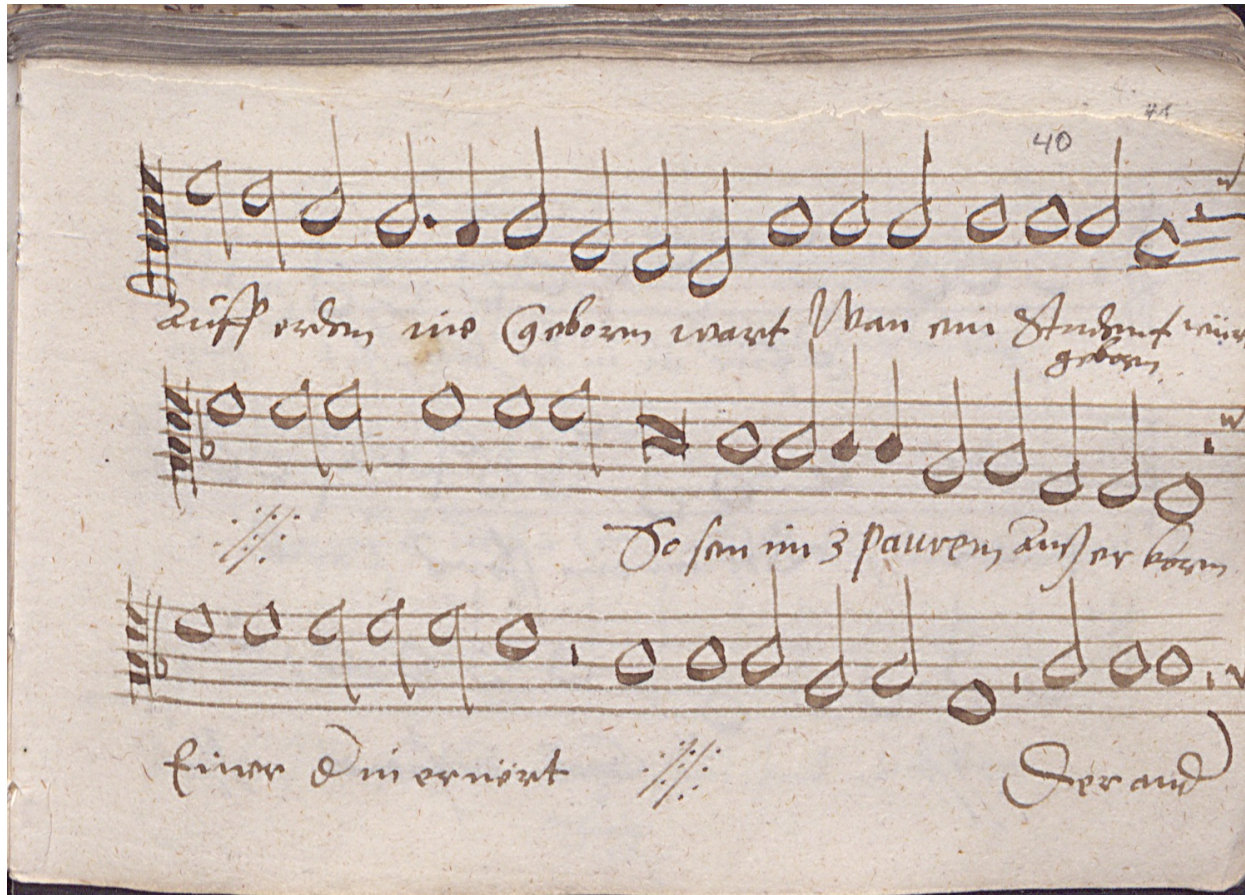 41
40
auff erden nie Geboren wart Wan ein Student wür
geborn
So sein im 3 pauren außerkoren
Einer d in ernert
Der and